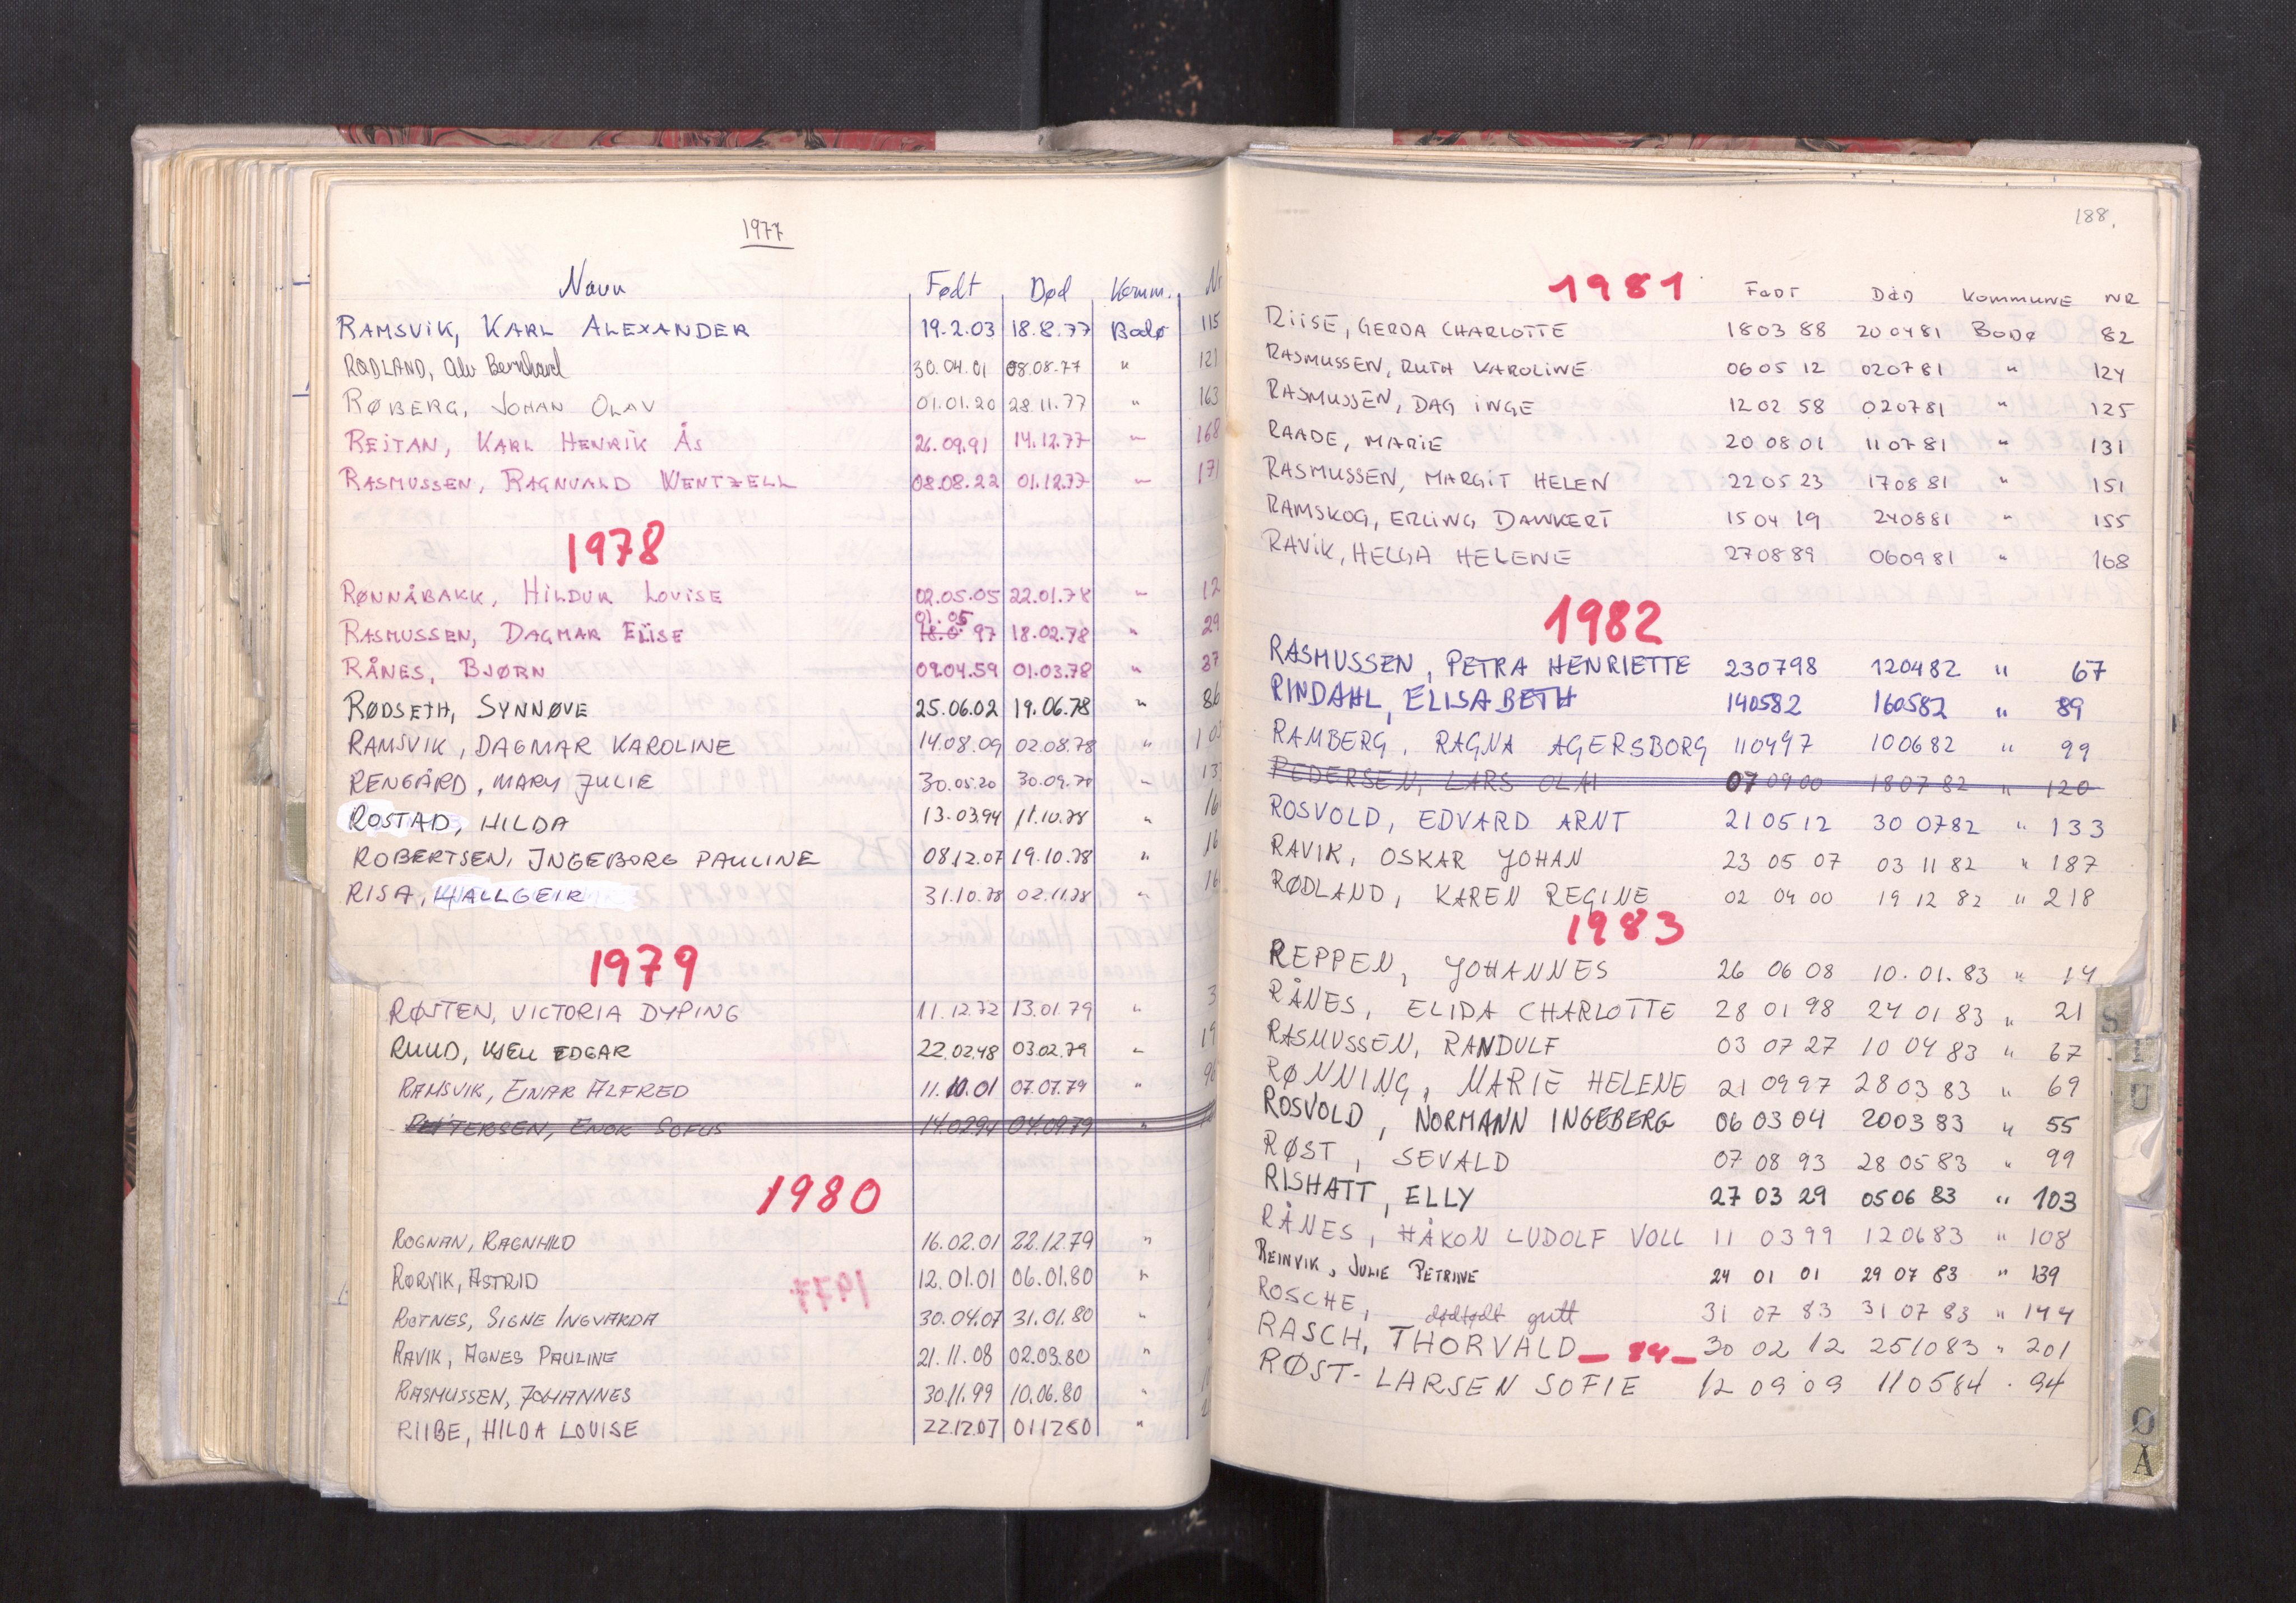 1977
Navn Født Død Komm. Nr
RAMSVIK, KARL ALEXANDER 19.2.03 18.8.77 Bodø 115
RØDLAND, Alv Bernhard 30.04.01 08.08.77 " 121
RØBERG, JOHAN OLAV 01.01.20 28.11.77 " 163
REITAN, KARL HENRIK ÅS 26.09.91 14.12.77 " 168
RASMUSSEN, RAGNVALD WENTZELL 08.08.22 01.12.77 " 171
1978
RØNNÅBAKK, HILDUR LOUISE 02.05.05 22.01.78 " 12
01.05
RASMUSSEN, DAGMAR ELISE 97 18.02.78 " 29
RÅNES, BJØRN 09.04.59 01.03.78 " 37
RØDSETH, SYNNØVE 25.06.02 19.06.78 " 86
RAMSVIK, DAGMAR KAROLINE 14.08.09 02.08.78 " 10
RENGÅRD, MARY JULIE 30.05.20 30.09.78 " 13
ROSTAD, HILDA 13.03.94 11.10.78 " 16
ROBERTSEN, INGEBORG PAULINE 08.12.07 19.10.78 " 16
RISA, HALLGEIR 31.10.78 02.11.78 " 16
1979
RØSTEN, VICTORIA DYPING 11.12.72 13.01.79 " 3
RUUD, KJELL EDGAR 22.02.48 03.02.79 " 19
RAMSVIK, EINAR ALFRED 11.10.01 07.07.79 " 96
PETTERSEN, ENOK SOFUS 14.02.94 04.09.79 "
1980
ROGNAN, RAGNHILD 16.02.01 22.12.79 "
RØRVIK, ASTRID 12.01.01 06.01.80 "
ROTNES, SIGNE INGVARDA 30.04.07 31.01.80 "
RAVIK, AGNES PAULINE 21.11.08 02.03.80 "
RASMUSSEN, JOHANNES 30.11.99 10.06.80 "
RIIBE, HILDA LOUISE 22.12.07 011280 "
188.
1981 FØDT DØD KOMMUNE NR
RIISE, GERDA CHARLOTTE 180388 200481 BODØ 82
RASMUSSEN, RUTH KAROLINE 060512 020781 " 124
RASMUSSEN, DAG INGE 120258 020781 " 125
RAADE, MARIE 200801 110781 " 131
RASMUSSEN, MARGIT HELEN 220523 170881 " 151
RAMSKOG, ERLING DANKERT 150419 240881 " 155
RAVIK, HELGA HELENE 270889 060981 " 168
1982
RASMUSSEN, PETRA HENRIETTE 230798 120482 " 67
RINDAHL, ELISABETH 140582 160582 " 89
RAMBERG, RAGNA AGERSBORG 110497 100682 " 99
PEDERSEN, LARS OLAI 070900 180782 " 120
ROSVOLD, EDVARD ARNT 210512 300782 " 133
RAVIK, OSKAR JOHAN 23 05 07 03 11 82 " 187
RØDLAND, KAREN REGINE 02 04 00 19 12 82 " 218
1983
REPPEN, JOHANNES 26 06 08 10.01.83 " 14
RÅNES, ELIDA CHARLOTTE 28 01 98 24 01 83 " 21
RASMUSSEN, RANDULF 03 07 27 10 04 83 " 67
RØNNING, MARIE HELENE 21 09 97 28 03 83 " 69
ROSVOLD, NORMANN INGEBERG 06 03 04 200383 " 55
RØST, SEVALD 07 08 93 28 05 83 " 99
RISHATT, ELLY 27 03 29 0506 83 " 103
RÅNES, HÅKON LUDOLF VOLL 11 0399 120683 " 108
REINVIK, JULIE PETRINE 24 01 01 29 07 83 " 139
ROSCHE, dødfødt gutt 31 07 83 31 07 83 " 144
RASCH, THORVALD - 84 - 30 02 12 251083 " 201
RØST-LARSEN SOFIE 12 09 09 110584 . 94
S
T
U
Ø
Å